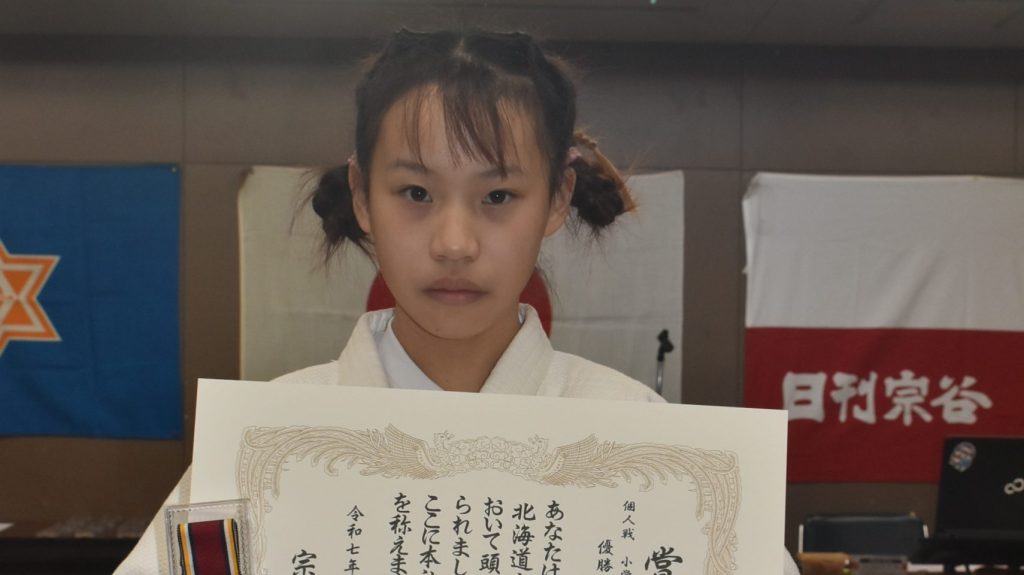 賞
個人戦 小学
優勝
あなたは
北海道
おいて頭
られまし
ここに本
を称えま
令和七年
宗
日刊宗谷